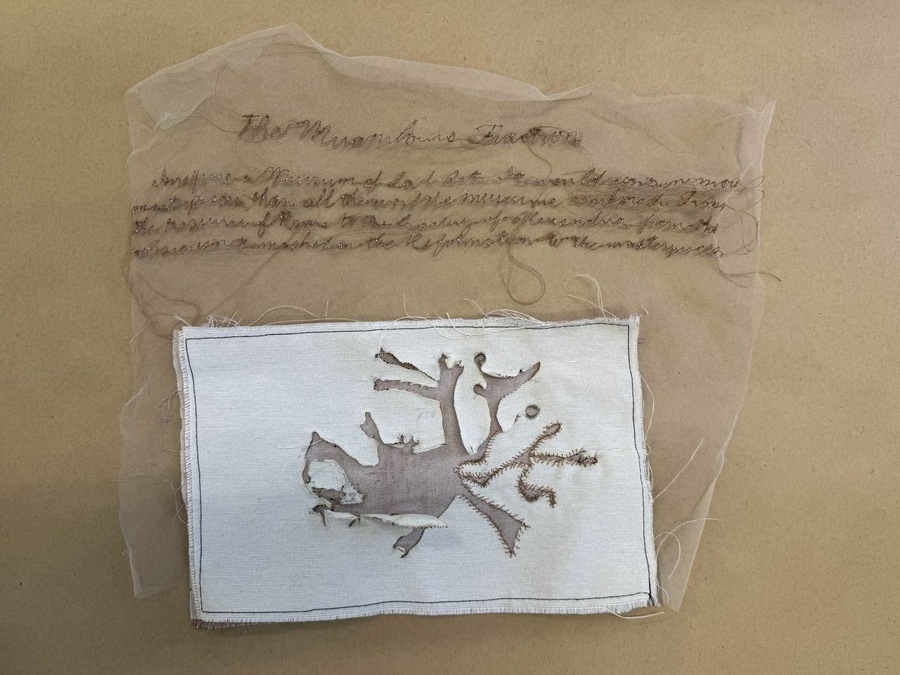 The Miraculous Fraction
Imagine a Museum of Lost Art. It would contain more
masterpieces than all the world's museums combined. From
the treasures of Rome to the Library of Alexandria, from the
smashed in the Reformation to the masterpieces